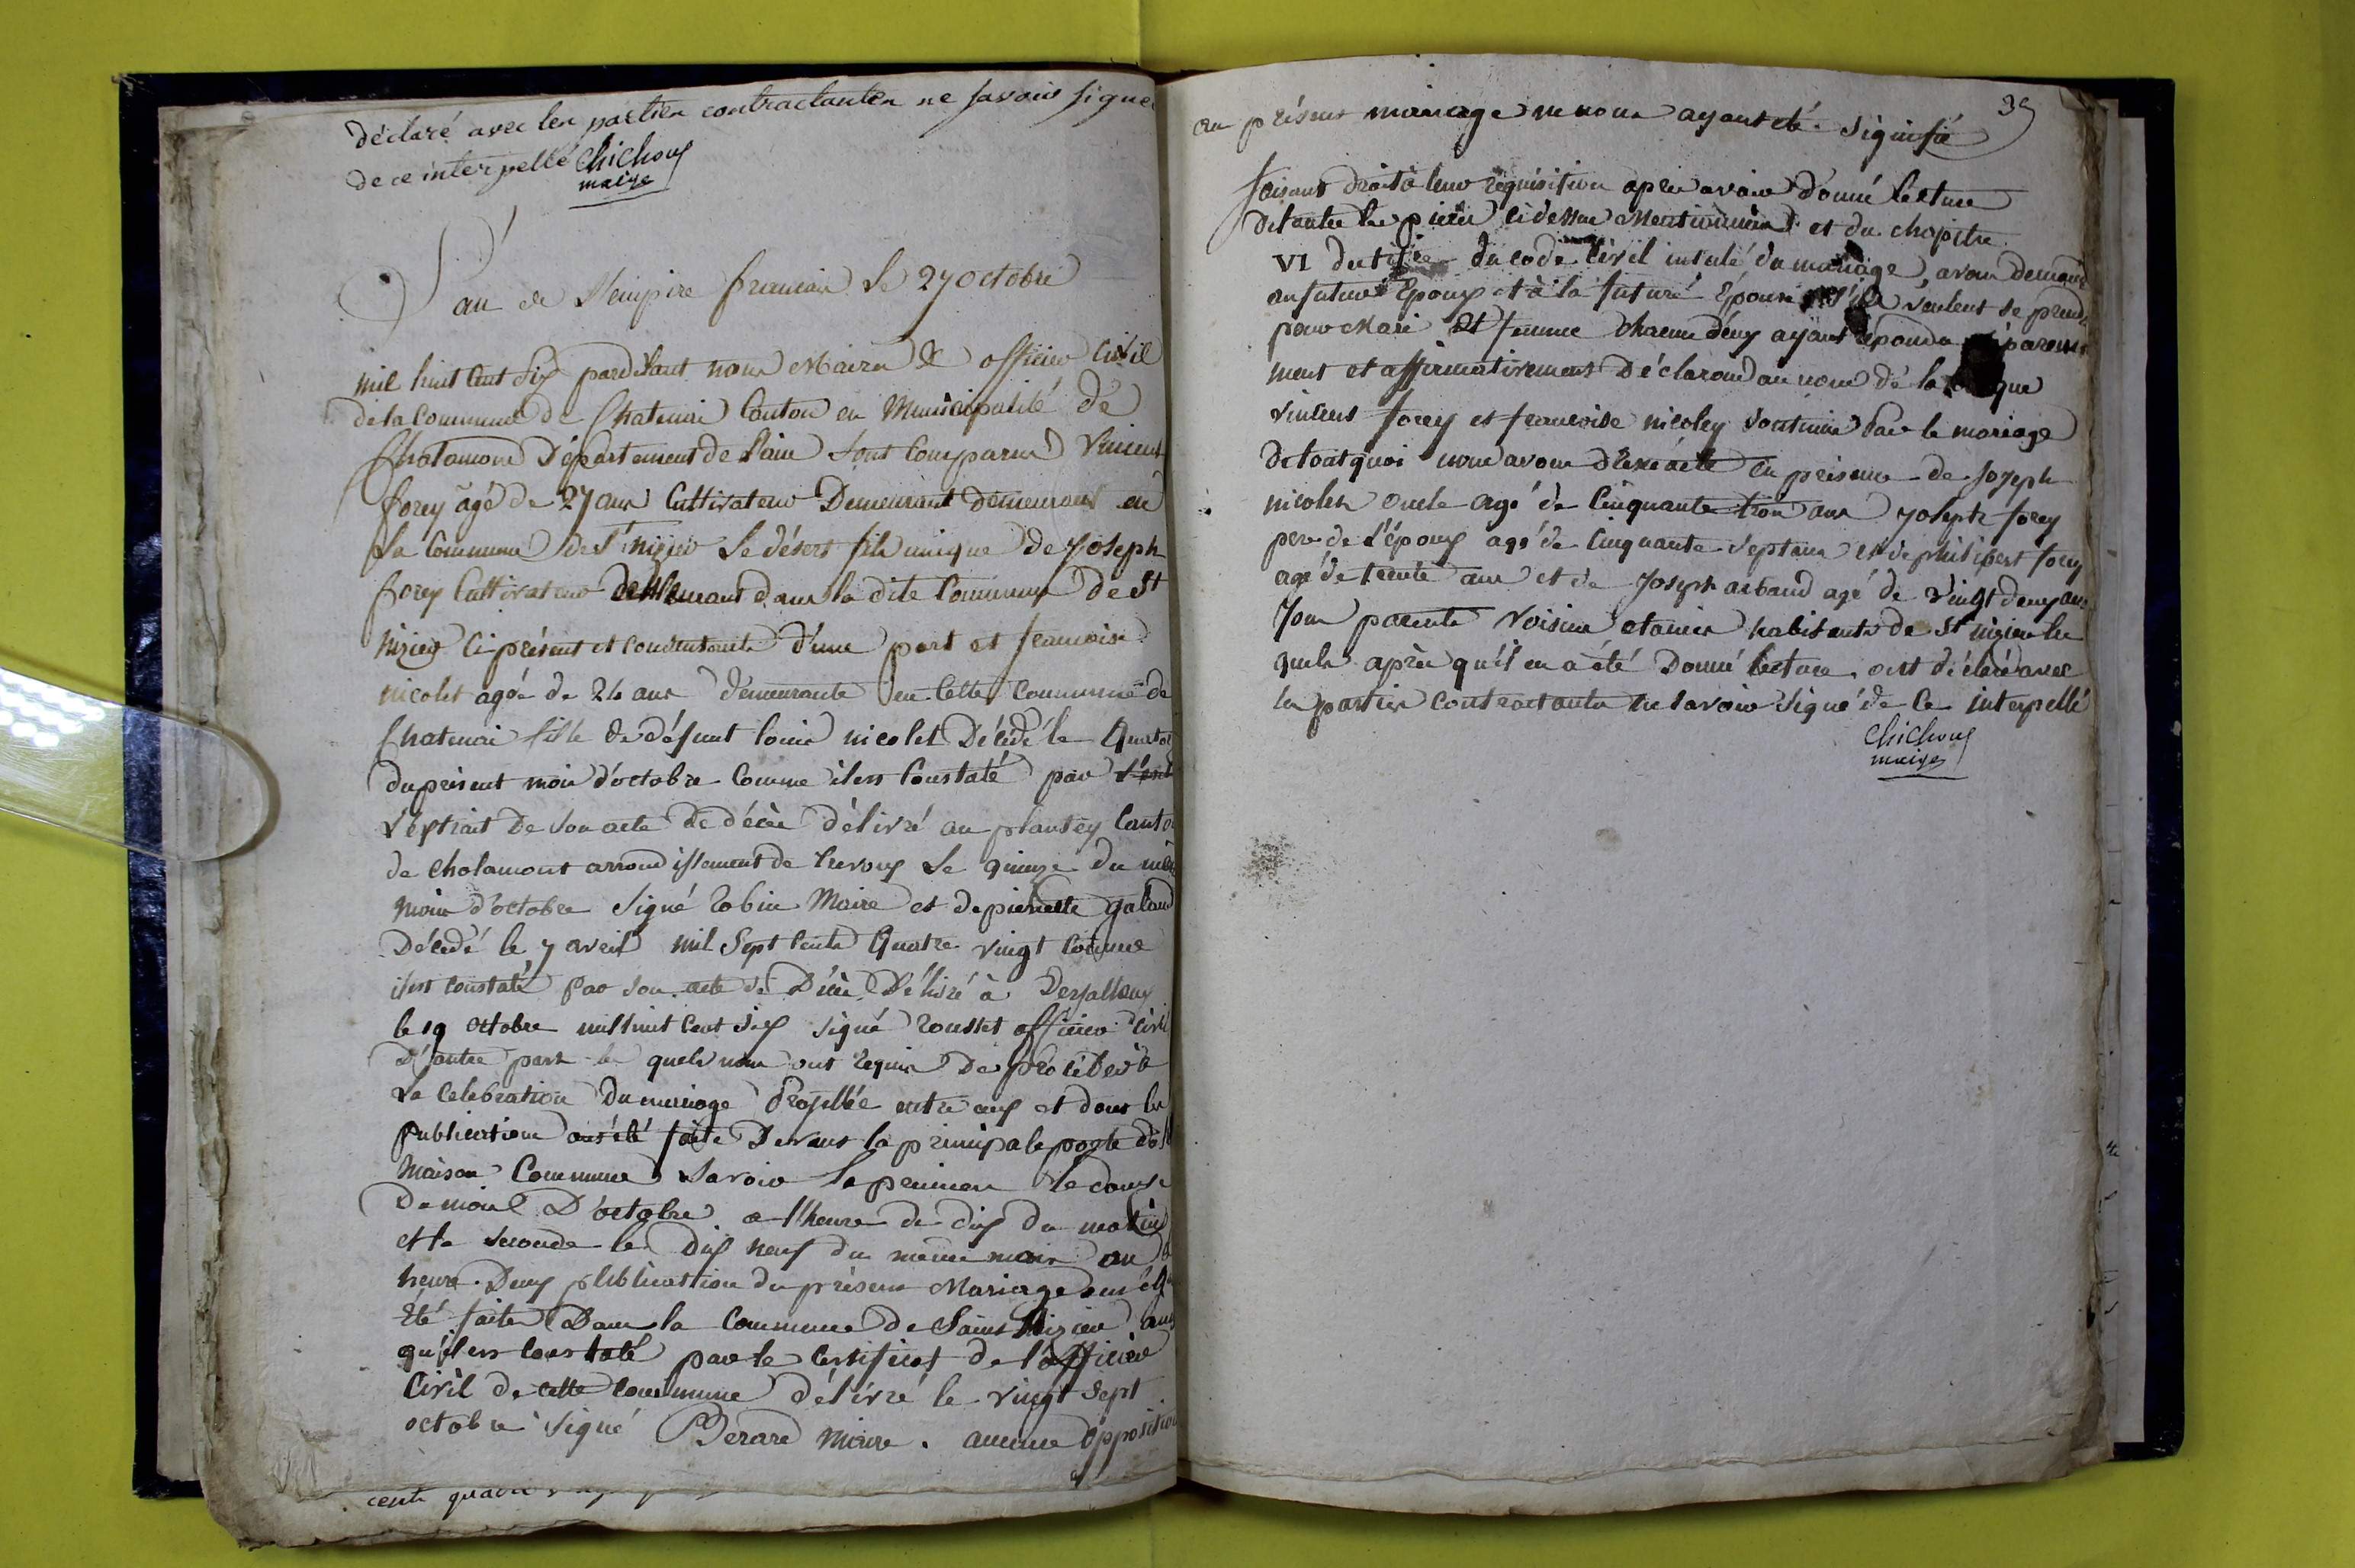 déclaré avec les parties contractantes ne savoir signer
de ce interpellé Chichoux
maire
L'an de l'empire francais le 27 octobre
mil huit cent six pardevant nous Maire & officier Civil
de la Commune de Chatenai Canton en Municipalité de
Chalamont Département de l'ain sont Comparus Vincent
forey agé de 27 ans Cultivateur Demeurant demeurant en
la Commune de St nizier le désert fils unique de Joseph
forey Cultivateur demeurant dans la dite Commune de St
nizier Ci présent et consentante d'une part et francoise
nicolet agée de 24 ans demeurante en Cette Commune de
Chatenai fille de défunt louis nicolet Décédé le Quatorze
du présent mois d'octobre Comme il est Constaté par
L'extrait De son acte de décès délivré au plantey Canton
de Chalamont arrondissement de trevoux le quinze du même
mois d'octobre signé Robin Maire et de pierrette galand
Décédé le 7 avril mil Sept Cents Quatre vingt Comme
il est constaté par son acte de Décès Délivré à
le 19 octobre mil huit Cent six signé rousset officier civil
d'autre part les quels nous ont requis De procéder à
La Celebration Du mariage Projettée entre eux et dont les
Publications ont été faite Devant la principale porte de la
Maison Commune Savoir la premiere le douze
De mois D'octobre a l'heure de dix du matin
et la seconde le Dix neuf du même mois
heure. Deux publication du présent Mariage
été faites Dans la Commune de Saint Nizier
qu'il est Constaté par le Certificat de l'officier
Civil de cette Commune délivré le vingt sept
octobre signé Berard Maire. aucune opposition
cents quatre
35
au présent mariage ne nous ayant été signifié
faisant droit à leur réquisition après avoir donné lecture
de toutes les pièces ci dessus Mentionnées et du chapitre
VI du titre du code Civil intulé du mariage, avons demandé
au futur Epoux et à la future Epouse s'ils veulent se prendre
pour Mari Et femme chacun d'eux ayant répondu séparem
ment et affirmativement Déclarons au nom de la
vincent forey et francoise nicoley sont unis Par le mariage
de tout quoi nous avons dressé acte en présence de Joseph
nicolet oncle agé de Cinquante trois ans Joseph forey
pere de l'époux agé de Cinquante Sept ans et de philibert forey
agé de trente ans et de Joseph arband agé de vingt deux ans
Tous parents Voisins et amis habitants de St nizier les
quels après qu'il en a été Donné lecture ont déclaré avec
les parties Contractantes ne savoir signé de Ce interpellé
Chichoux
maire